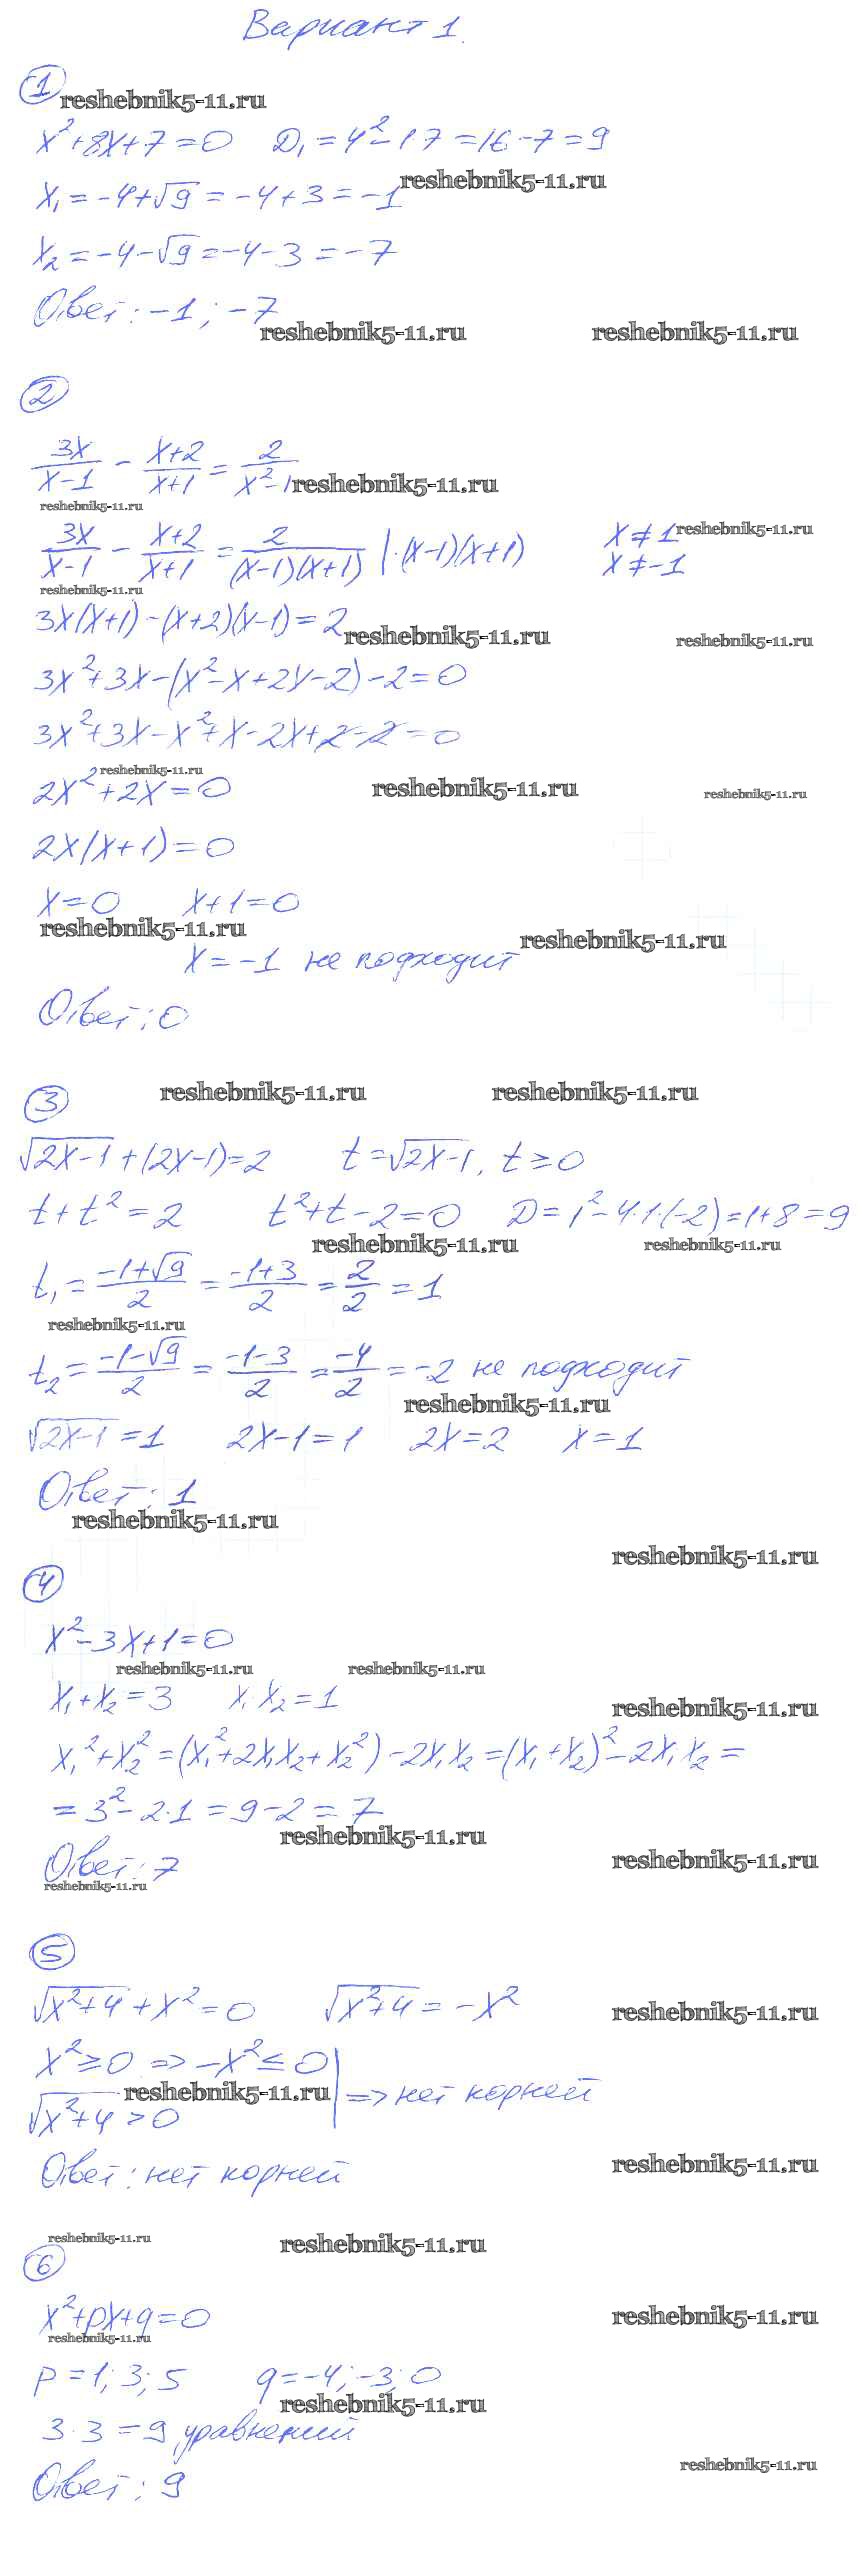 Вариант 1.
1
reshebnik5-11.ru
x²+8x+7=0 D₁=4²-1·7=16-7=9
reshebnik5-11.ru
x₁=-4+√9=-4+3=-1
x₂=-4-√9=-4-3=-7
Ответ: -1; -7
reshebnik5-11.ru reshebnik5-11.ru
2
3x/(x-1) - (x+2)/(x+1) = 2/(x²-1)
reshebnik5-11.ru
reshebnik5-11.ru
3x/(x-1) - (x+2)/(x+1) = 2/((x-1)(x+1)) |·(x-1)(x+1) x≠1 reshebnik5-11.ru
x≠-1
reshebnik5-11.ru
3x(x+1)-(x+2)(x-1)=2
reshebnik5-11.ru reshebnik5-11.ru
3x²+3x-(x²-x+2x-2)-2=0
3x²+3x-x²+x-2x+2-2=0
reshebnik5-11.ru
2x²+2x=0 reshebnik5-11.ru reshebnik5-11.ru
2x(x+1)=0
x=0 x+1=0
reshebnik5-11.ru reshebnik5-11.ru
x=-1 не подходит
Ответ: 0
reshebnik5-11.ru reshebnik5-11.ru
3
√(2x-1)+(2x-1)=2 t=√(2x-1), t≥0
t+t²=2 t²+t-2=0 D=1²-4·1·(-2)=1+8=9
reshebnik5-11.ru reshebnik5-11.ru
t₁=(-1+√9)/2=(-1+3)/2=2/2=1
reshebnik5-11.ru
t₂=(-1-√9)/2=(-1-3)/2=-4/2=-2 не подходит
reshebnik5-11.ru
√(2x-1)=1 2x-1=1 2x=2 x=1
Ответ: 1
reshebnik5-11.ru
reshebnik5-11.ru
4
x²-3x+1=0
reshebnik5-11.ru reshebnik5-11.ru
x₁+x₂=3 x₁x₂=1
reshebnik5-11.ru
x₁²+x₂²=(x₁²+2x₁x₂+x₂²)-2x₁x₂=(x₁+x₂)²-2x₁x₂=
=3²-2·1=9-2=7
reshebnik5-11.ru
Ответ: 7
reshebnik5-11.ru
reshebnik5-11.ru
5
√(x²+4)+x²=0 √(x²+4)=-x²
reshebnik5-11.ru
x²≥0 => -x²≤0
reshebnik5-11.ru | => нет корней
√(x²+4)>0
Ответ: нет корней
reshebnik5-11.ru
reshebnik5-11.ru reshebnik5-11.ru
6
x²+px+q=0
reshebnik5-11.ru
reshebnik5-11.ru
p=1; 3; 5 q=-4; -3; 0
reshebnik5-11.ru
3·3=9 уравнений
reshebnik5-11.ru
Ответ: 9